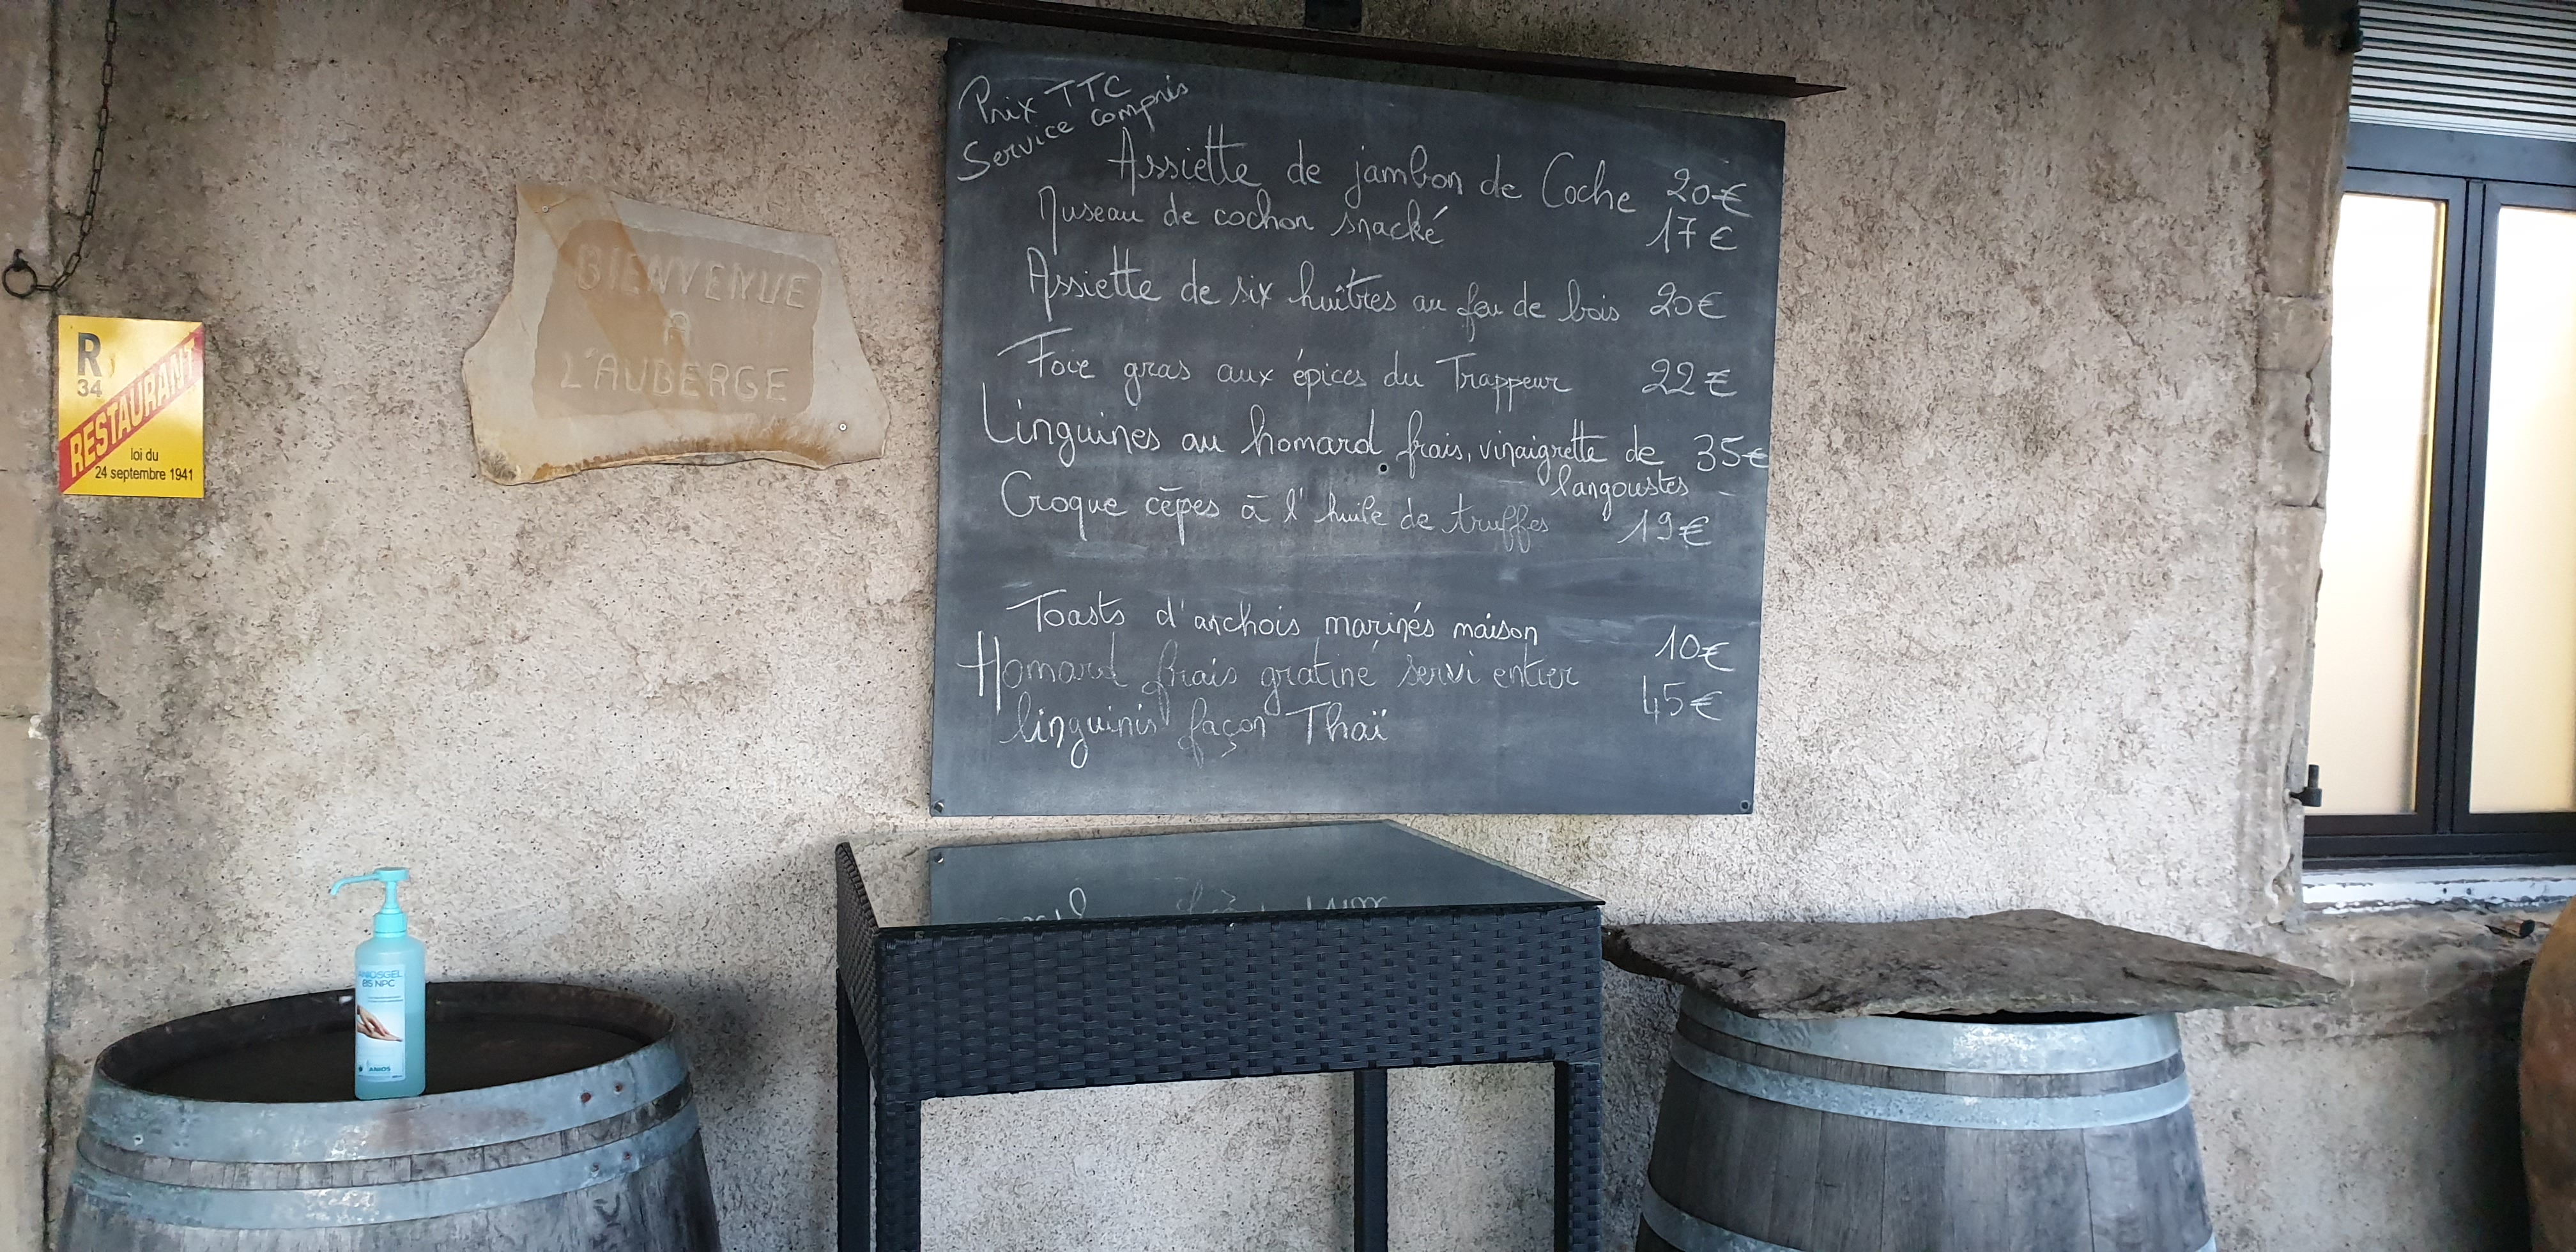 R
34
RESTAURANT
loi du
24 septembre 1941
BIENVENUE
A
L'AUBERGE
Prix TTC
Service compris
Assiette de jambon de Coche 20€
Museau de cochon snacké 17€
Assiette de six huîtres au feu de bois 20€
Foie gras aux épices du Trappeur 22€
Linguines au homard frais, vinaigrette de 35€
langoustes
Croque cēpes ā l'huile de truffes 19€
Toasts d'anchois marinés maison 10€
Homard frais gratiné servi entier 45€
linguinis façon Thaï
ANIOSGEL
85 NPC
ANIOS